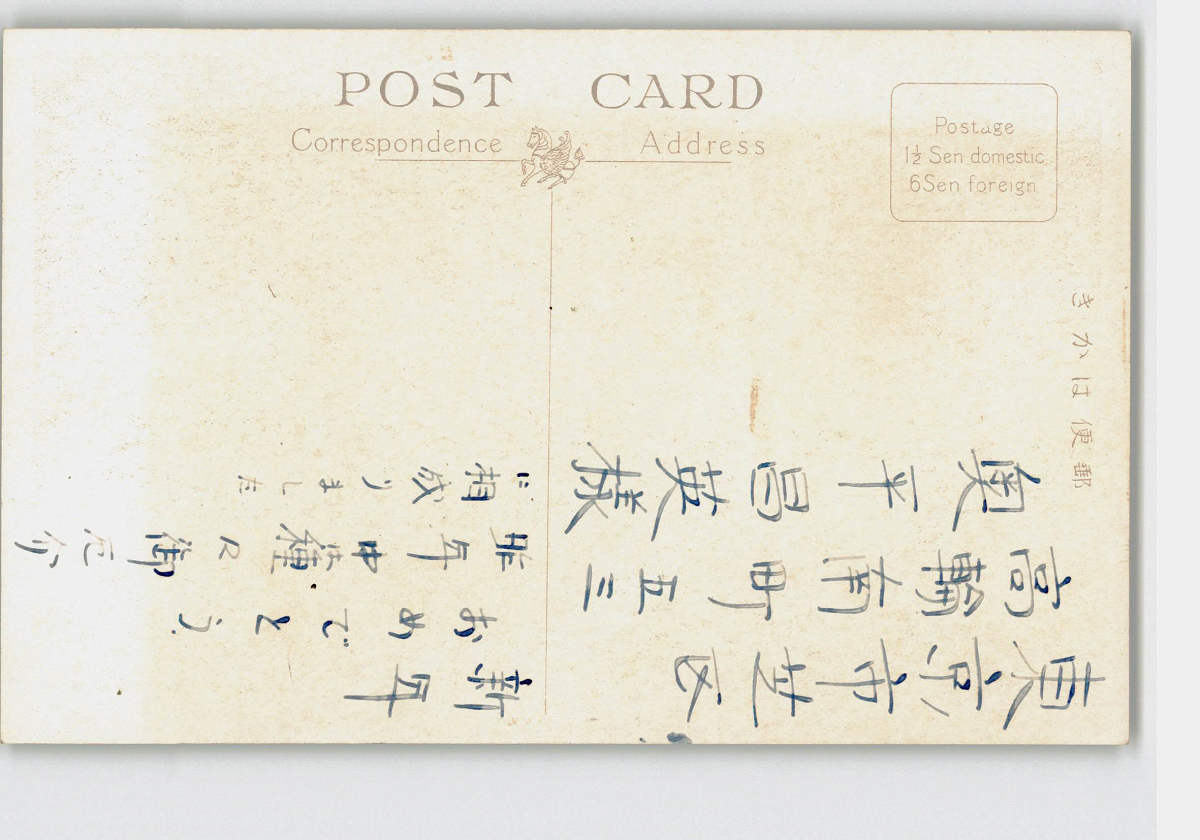 POST CARD
Correspondence
Address
Postage
1½ Sen domestic
6 Sen foreign
きかは便郵
東京市芝区
高輪南町五三
奥平昌英様
新年
おめでとう
昨年中種々御厄介
に相成りました